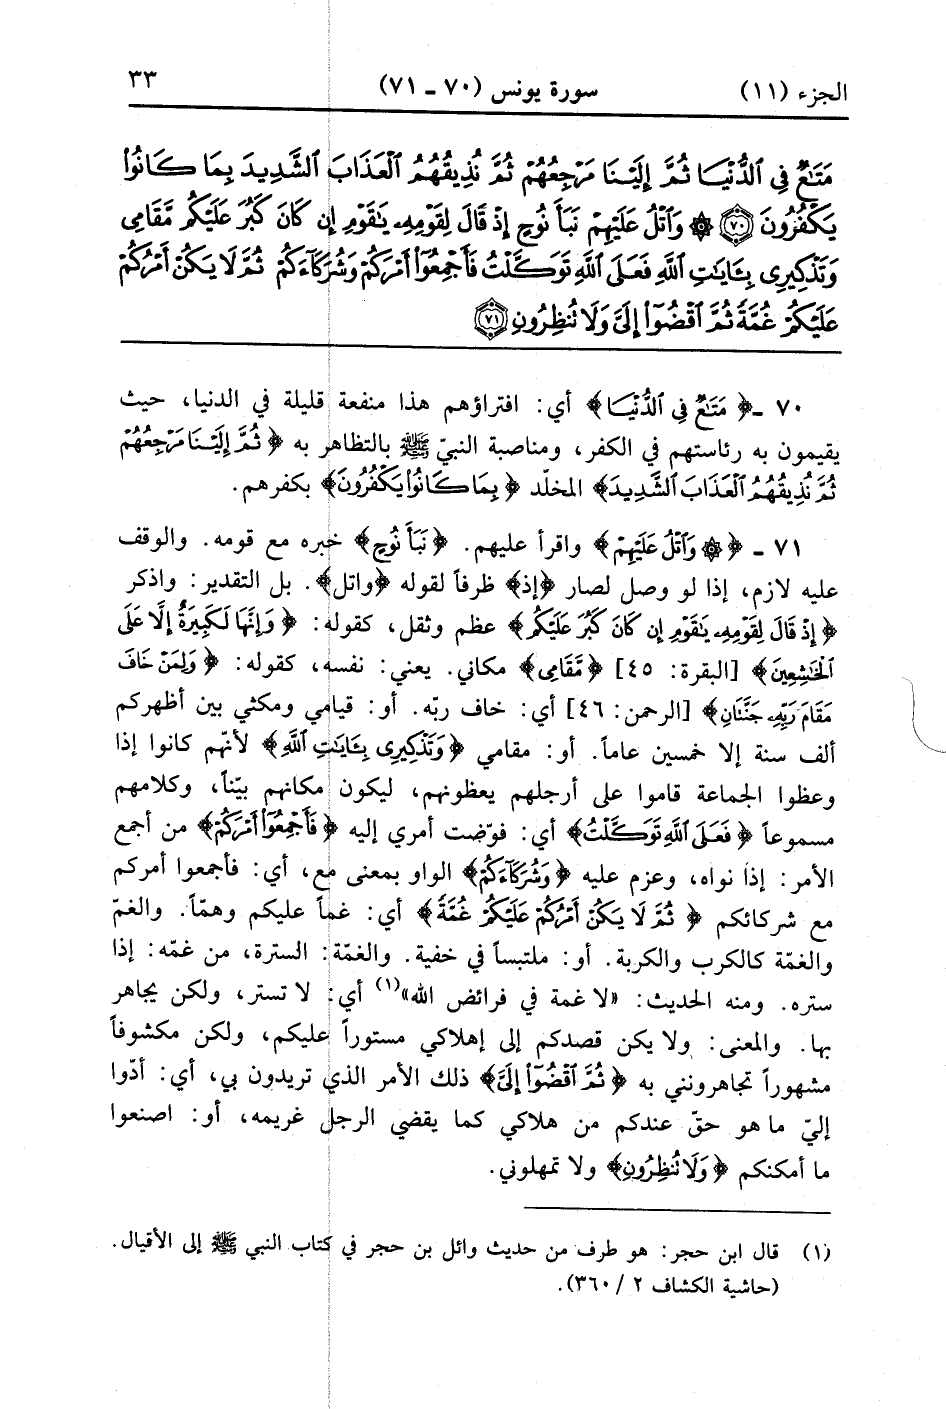 الجزء (١١) سورة يونس (٧٠ ـ ٧١) ٣٣
مَتَٰعٌ فِى ٱلدُّنْيَا ثُمَّ إِلَيْنَا مَرْجِعُهُمْ ثُمَّ نُذِيقُهُمُ ٱلْعَذَابَ ٱلشَّدِيدَ بِمَا كَانُوا۟
يَكْفُرُونَ ﴿٧٠﴾ ۞ وَٱتْلُ عَلَيْهِمْ نَبَأَ نُوحٍ إِذْ قَالَ لِقَوْمِهِۦ يَٰقَوْمِ إِن كَانَ كَبُرَ عَلَيْكُم مَّقَامِى
وَتَذْكِيرِى بِـَٔايَٰتِ ٱللَّهِ فَعَلَى ٱللَّهِ تَوَكَّلْتُ فَأَجْمِعُوٓا۟ أَمْرَكُمْ وَشُرَكَآءَكُمْ ثُمَّ لَا يَكُنْ أَمْرُكُمْ
عَلَيْكُمْ غُمَّةً ثُمَّ ٱقْضُوٓا۟ إِلَىَّ وَلَا تُنظِرُونِ ﴿٧١﴾
٧٠ ـ ﴿مَتَٰعٌ فِى ٱلدُّنْيَا﴾ أي: افتراؤهم هذا منفعة قليلة في الدنيا، حيث
يقيمون به رئاستهم في الكفر، ومناصبة النبيّ ﷺ بالتظاهر به ﴿ثُمَّ إِلَيْنَا مَرْجِعُهُمْ
ثُمَّ نُذِيقُهُمُ ٱلْعَذَابَ ٱلشَّدِيدَ﴾ المخلّد ﴿بِمَا كَانُوا۟ يَكْفُرُونَ﴾ بكفرهم.
٧١ ـ ﴿۞ وَٱتْلُ عَلَيْهِمْ﴾ واقرأ عليهم. ﴿نَبَأَ نُوحٍ﴾ خبره مع قومه. والوقف
عليه لازم، إذا لو وصل لصار ﴿إذ﴾ ظرفاً لقوله ﴿واتل﴾. بل التقدير: واذكر
﴿إِذْ قَالَ لِقَوْمِهِۦ يَٰقَوْمِ إِن كَانَ كَبُرَ عَلَيْكُم﴾ عظم وثقل، كقوله: ﴿وَإِنَّهَا لَكَبِيرَةٌ إِلَّا عَلَى
ٱلْخَٰشِعِينَ﴾ [البقرة: ٤٥] ﴿مَّقَامِى﴾ مكاني. يعني: نفسه، كقوله: ﴿وَلِمَنْ خَافَ
مَقَامَ رَبِّهِۦ جَنَّتَانِ﴾ [الرحمن: ٤٦] أي: خاف ربّه. أو: قيامي ومكثي بين أظهركم
ألف سنة إلا خمسين عاماً. أو: مقامي ﴿وَتَذْكِيرِى بِـَٔايَٰتِ ٱللَّهِ﴾ لأنهم كانوا إذا
وعظوا الجماعة قاموا على أرجلهم يعظونهم، ليكون مكانهم بيّناً، وكلامهم
مسموعاً ﴿فَعَلَى ٱللَّهِ تَوَكَّلْتُ﴾ أي: فوّضت أمري إليه ﴿فَأَجْمِعُوٓا۟ أَمْرَكُمْ﴾ من أجمع
الأمر: إذا نواه، وعزم عليه ﴿وَشُرَكَآءَكُمْ﴾ الواو بمعنى مع، أي: فأجمعوا أمركم
مع شركائكم ﴿ثُمَّ لَا يَكُنْ أَمْرُكُمْ عَلَيْكُمْ غُمَّةً﴾ أي: غماً عليكم وهمّاً. والغمّ
والغمّة كالكرب والكربة. أو: ملتبساً في خفية. والغمّة: السترة، من غمّه: إذا
ستره. ومنه الحديث: «لا غمة في فرائض الله»(١) أي: لا تستر، ولكن يجاهر
بها. والمعنى: ولا يكن قصدكم إلى إهلاكي مستوراً عليكم، ولكن مكشوفاً
مشهوراً تجاهرونني به ﴿ثُمَّ ٱقْضُوٓا۟ إِلَىَّ﴾ ذلك الأمر الذي تريدون بي، أي: أدّوا
إليّ ما هو حقّ عندكم من هلاكي كما يقضي الرجل غريمه، أو: اصنعوا
ما أمكنكم ﴿وَلَا تُنظِرُونِ﴾ ولا تمهلوني.
(١) قال ابن حجر: هو طرف من حديث وائل بن حجر في كتاب النبي ﷺ إلى الأقيال.
(حاشية الكشاف ٢ / ٣٦٠).